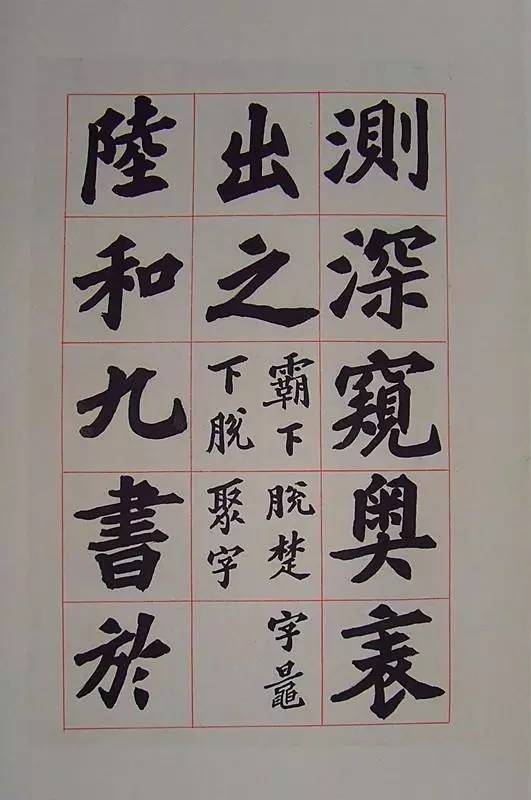 測深窺奥表
出之
霸下脱楚字鼂
下脱聚字
陸和九書於